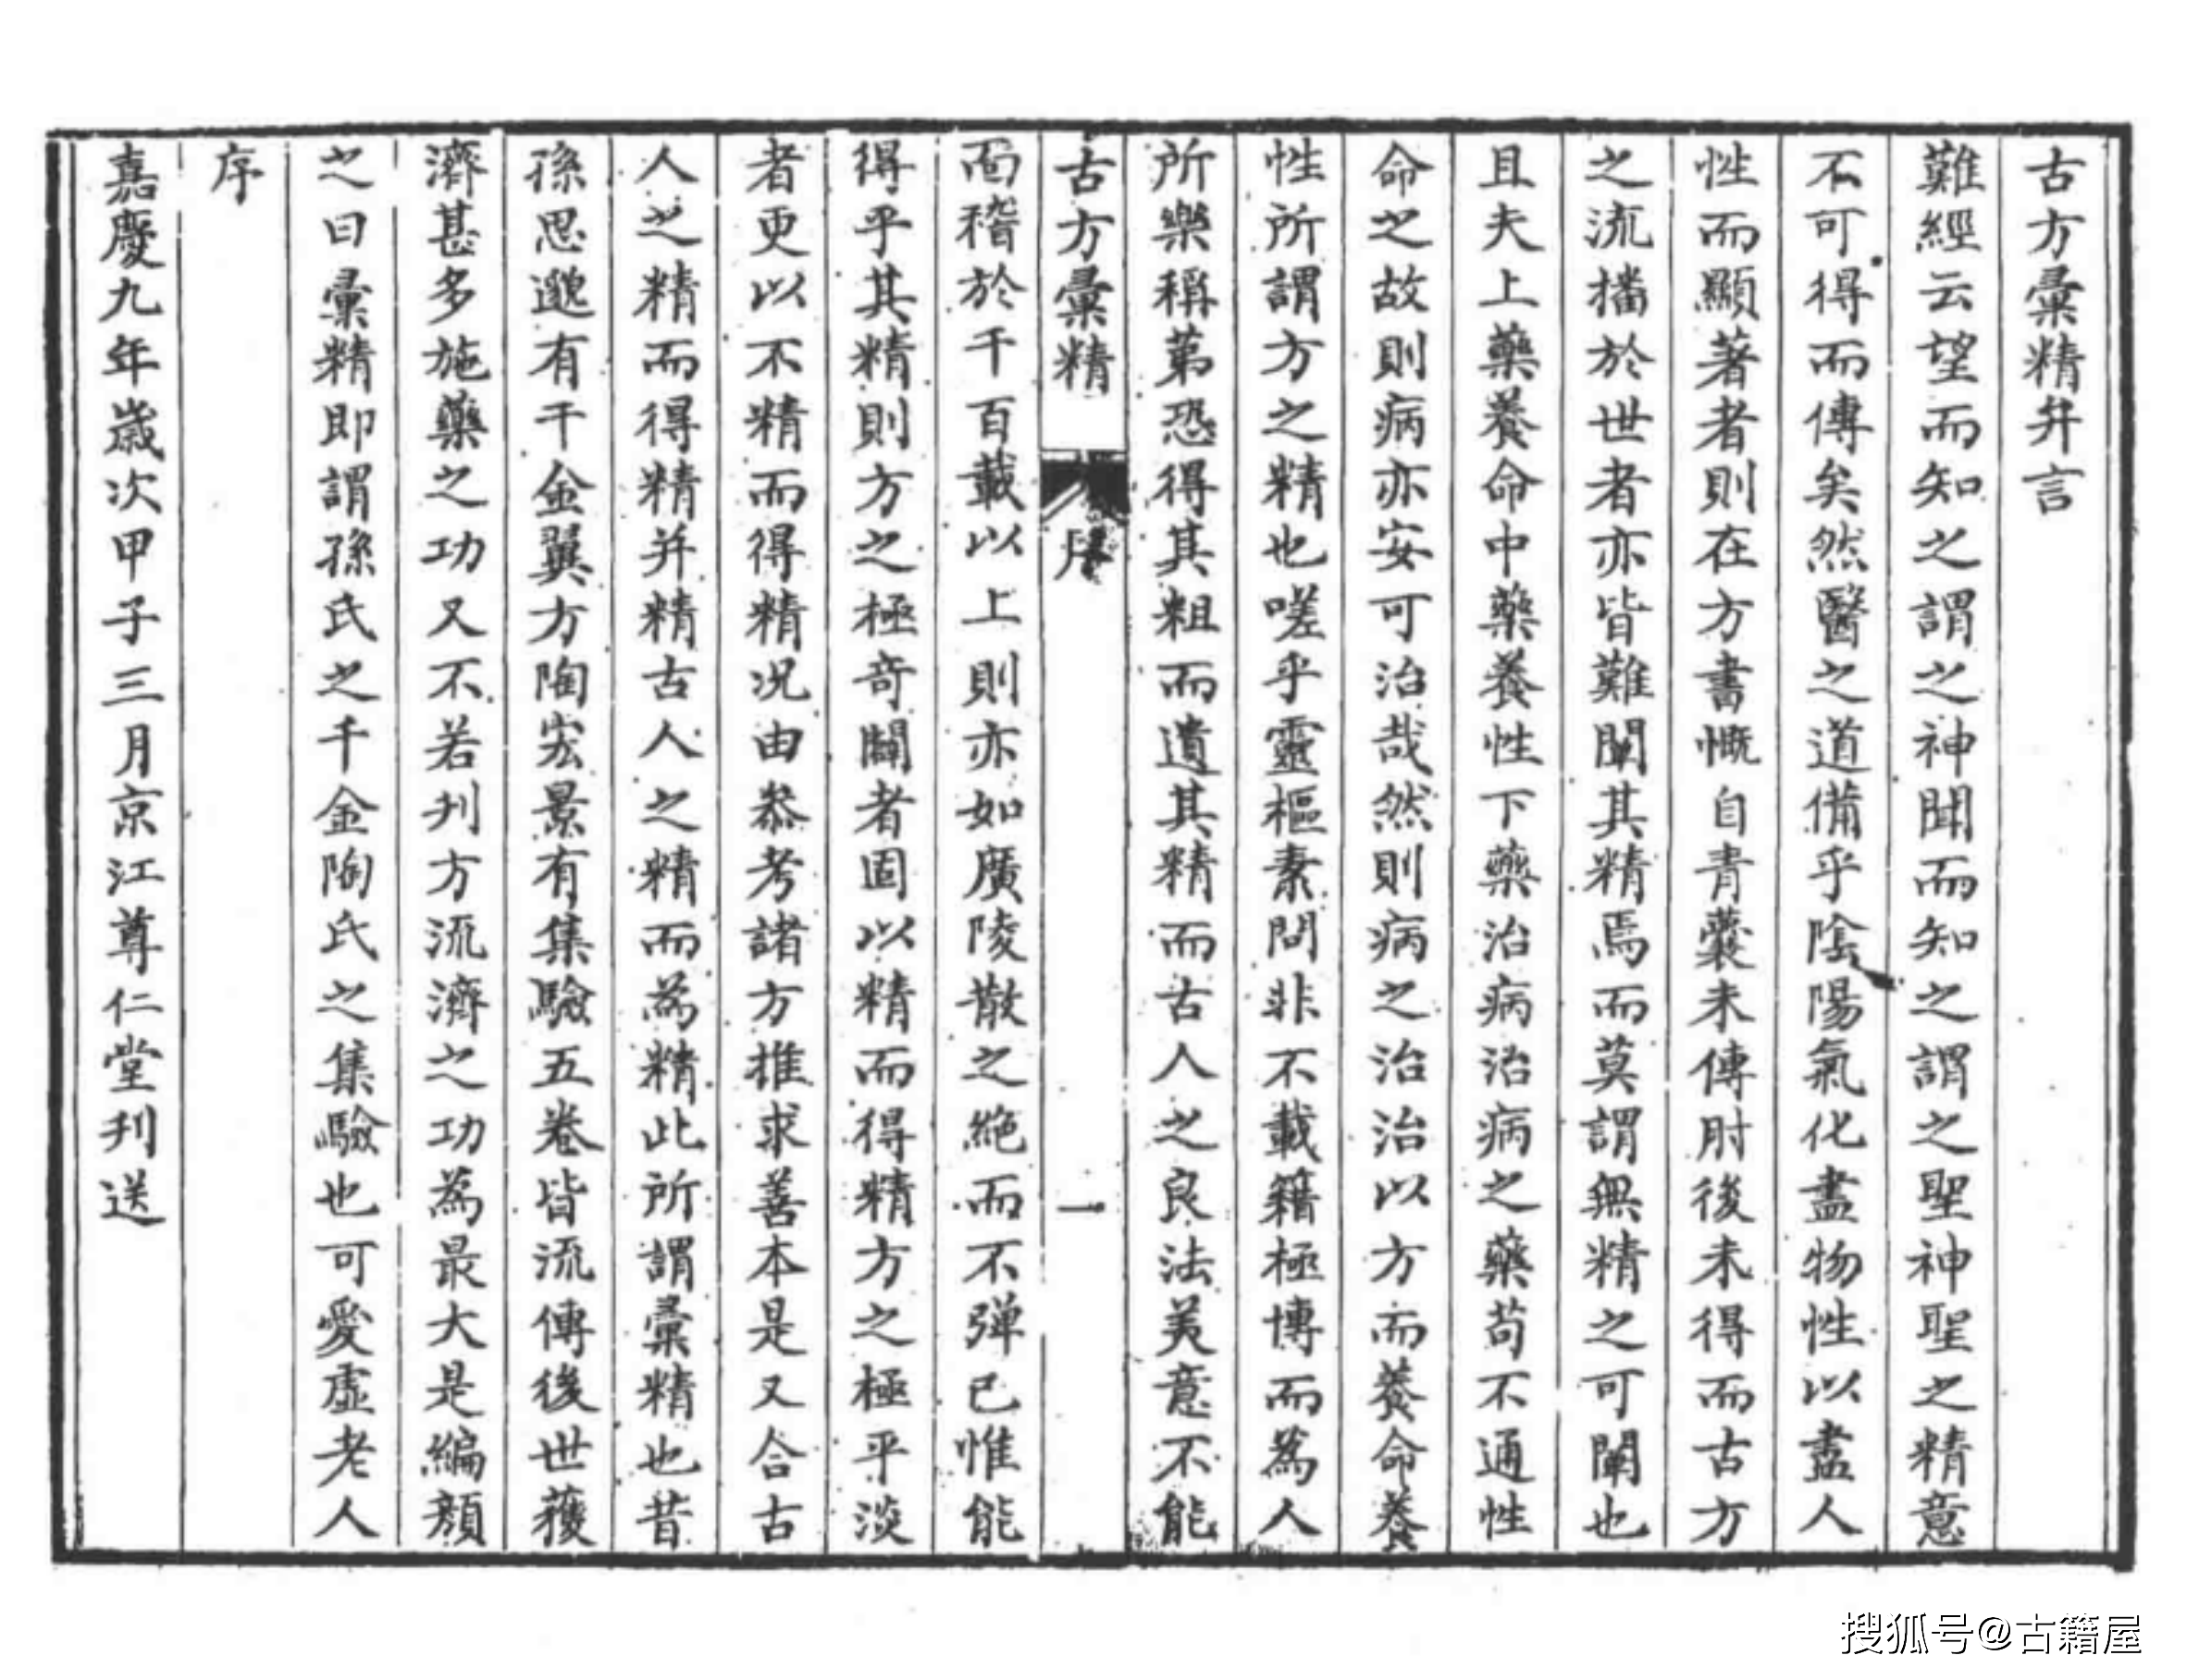 古方彙精弁言
難經云望而知之謂之神聞而知之謂之聖神聖之精意
不可得而傳矣然醫之道備乎陰陽氣化盡物性以盡人
性而顯著者則在方書慨自青囊未傳肘後未得而古方
之流播於世者亦皆難闡其精焉而莫謂無精之可闡也
且夫上藥養命中藥養性下藥治病治病之藥苟不通性
命之故則病亦安可治哉然則病之治治以方而養命養
性所謂方之精也嗟乎靈樞素問非不載籍極博而為人
所樂稱第恐得其粗而遺其精而古人之良法美意不能
古方彙精 序 一
面稽於千百載以上則亦如廣陵散之絶而不彈已惟能
得乎其精則方之極奇闢者固以精而得精方之極乎淡
者更以不精而得精况由叅考諸方推求善本是又合古
人之精而得精并精古人之精而為精此所謂彙精也昔
孫思邈有千金翼方陶宏景有集驗五卷皆流傳後世獲
濟甚多施藥之功又不若刋方流濟之功為最大是編顏
之曰彙精即謂孫氏之千金陶氏之集驗也可愛虛老人
序
嘉慶九年歲次甲子三月京江尊仁堂刋送
搜狐号@古籍屋